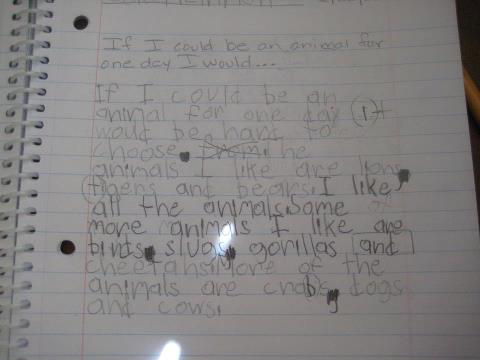 If I could be an animal for
one day I would...
If I could be an
animal for one day It
would be hard to
choose. The
animals I like are lions,
tigers and bears. I like
all the animals. Some of
more animals I like are
birds, slugs, gorillas and
cheetahs. More of the
animals are crabs, dogs
and cows.